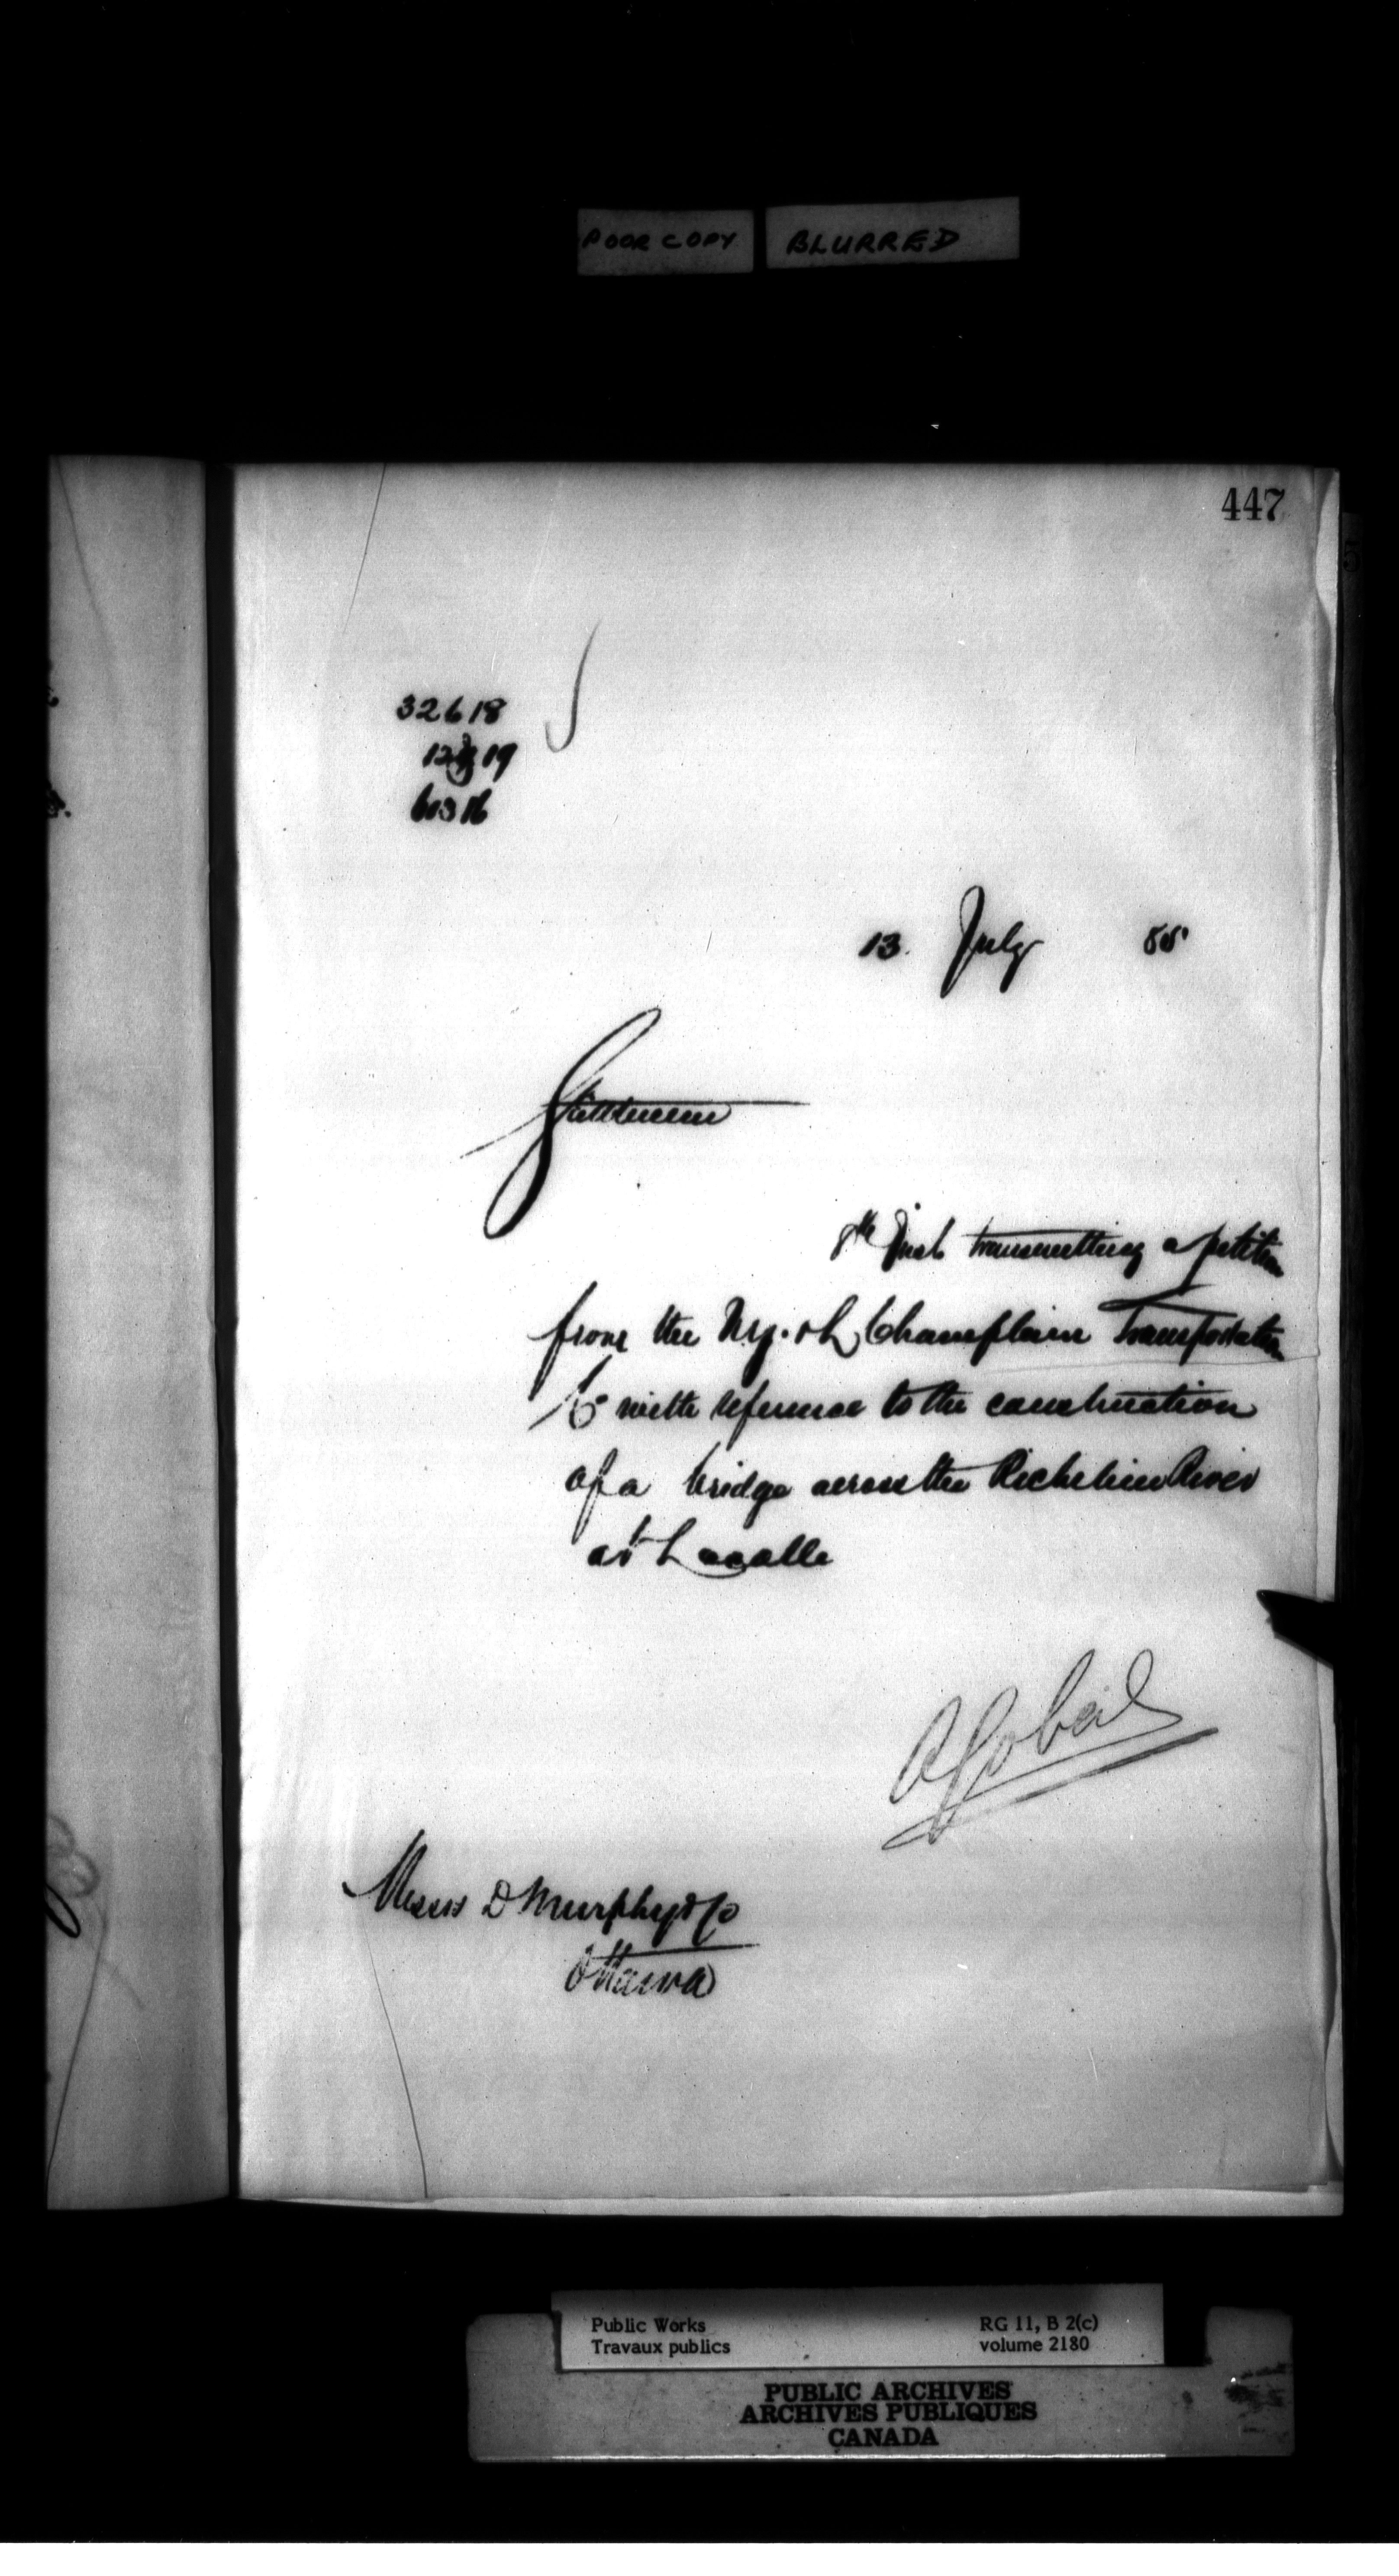 POOR COPY BLURRED
447
32618
19
13. July 85
Gentlemen
8th Inst transmitting a petition
from the Ny. & L Champlain Transportation
Co with reference to the construction
of a bridge across the Richelieu River
at Lacolle
A Gobeil
Messrs D Murphy & Co
Ottawa
Public Works RG 11, B 2(c)
Travaux publics volume 2180
PUBLIC ARCHIVES
ARCHIVES PUBLIQUES
CANADA